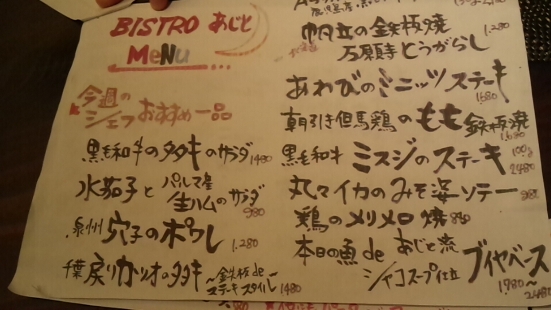 BISTRO あじと
MeNu
今週の
シェフおすすめ一品
黒毛和牛のタタキのサラダ 1480
水茄子とパルマ産生ハムのサラダ 980
泉州 穴子のポワレ 1.280
千葉 戻りカツオのタタキ
～鉄板de
ステーキスタイル～ 1480
帆立の鉄板焼
万願寺とうがらし 1.280
あわびのミニッツステーキ 1680
朝引き但馬鶏のもも鉄板焼
黒毛和牛 ミスジのステーキ 100g 2480
丸々イカのみそ姿ソテー 980
鶏のメリメロ焼 880
本日の魚de あじと流
シャコスープ仕立 ブイヤベース
1980～
2480